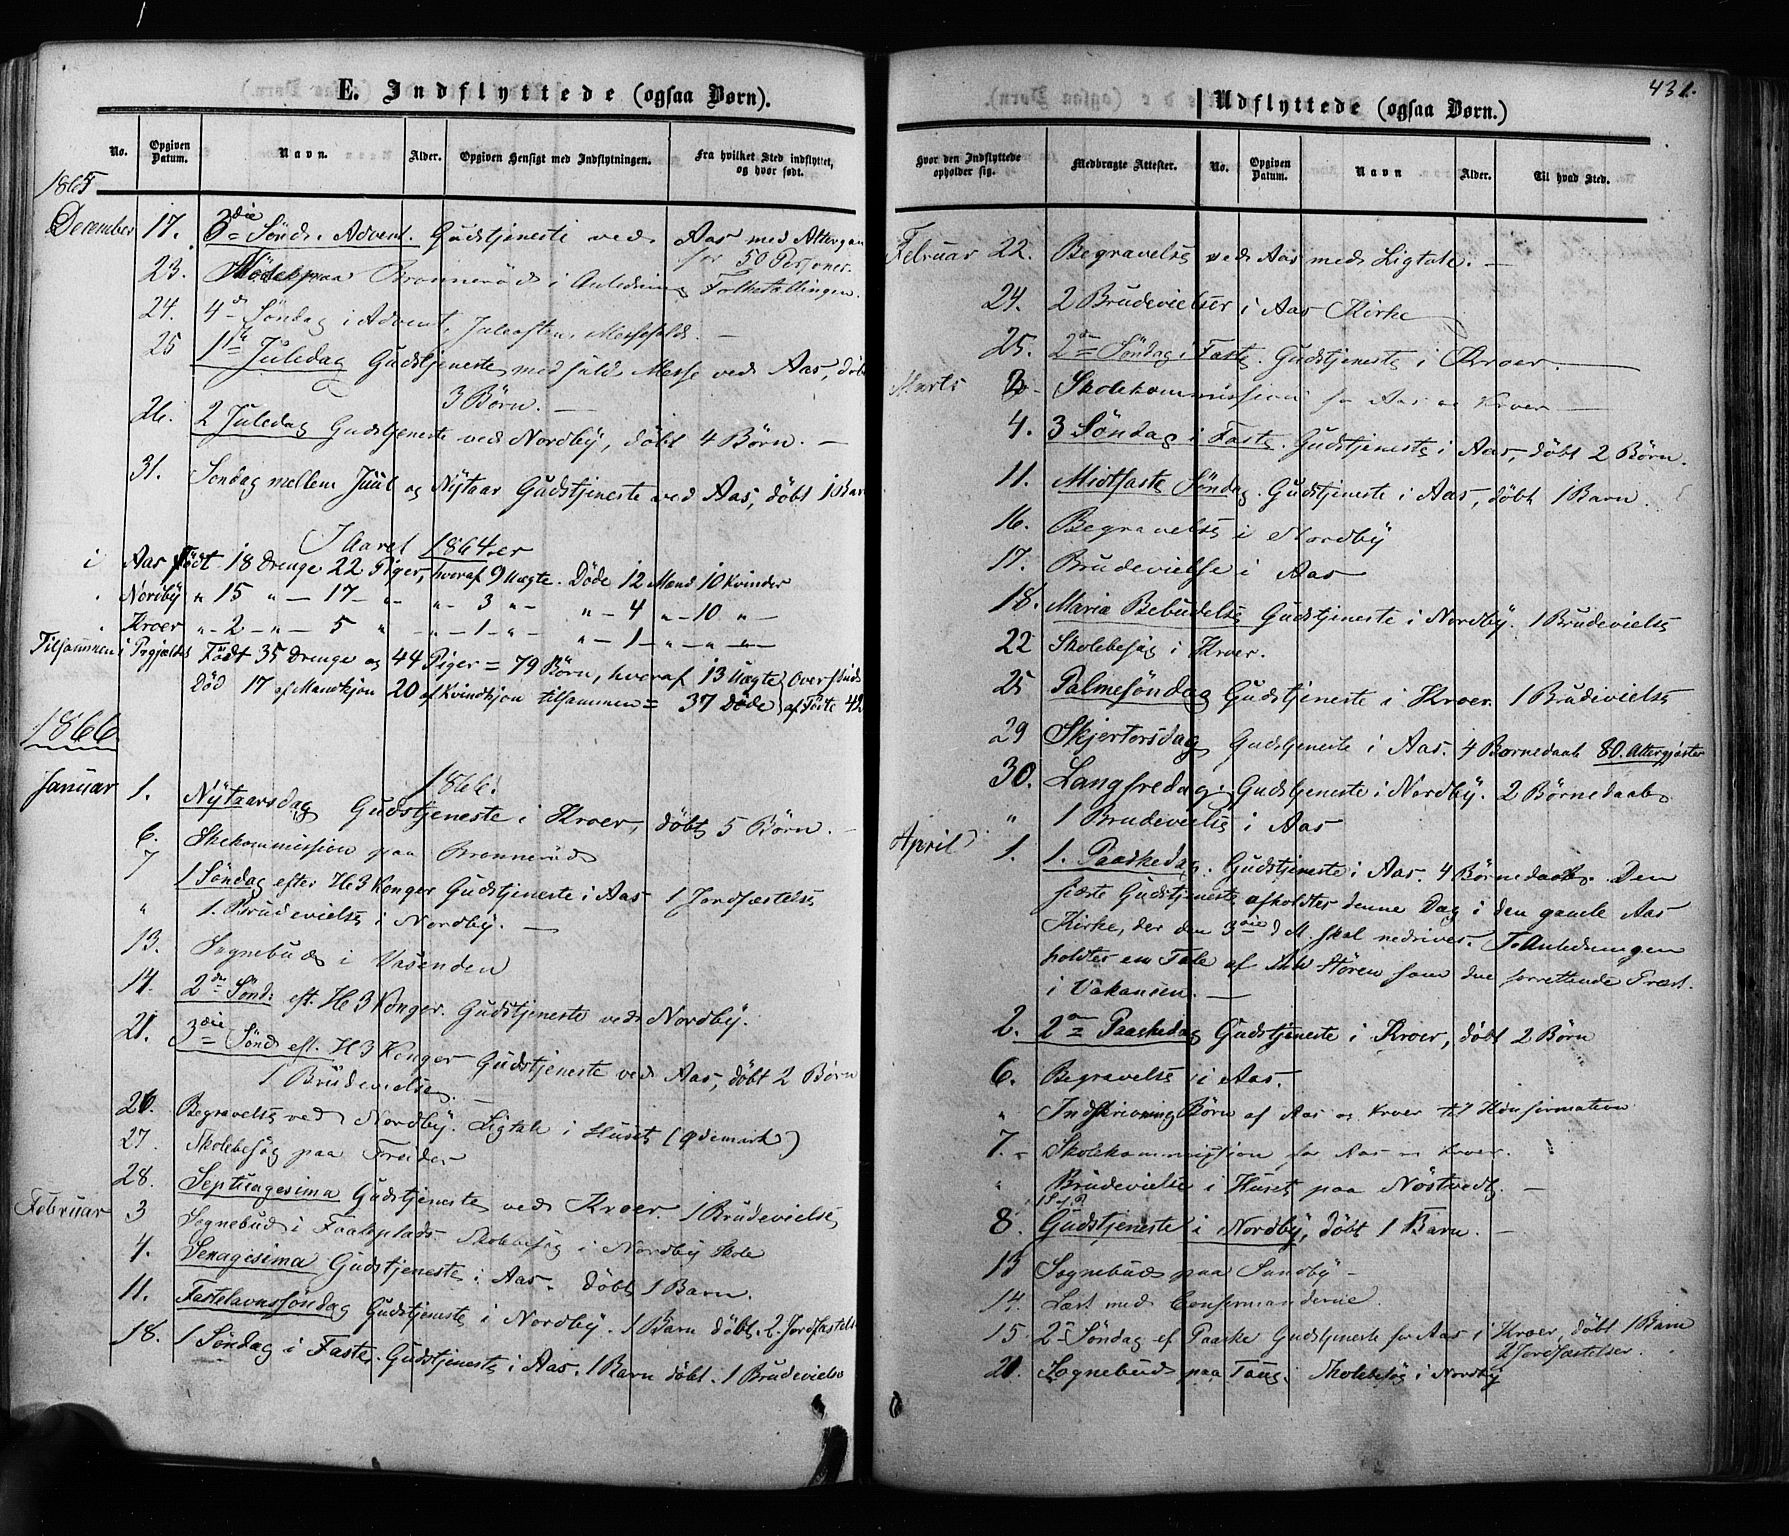 E. Indflyttede (ogsaa Børn).
No.
Opgiven Datum.
Navn.
Alder.
Opgiven Hensigt med Indflytningen.
Fra hvilket Sted indflyttet, og hvor født.
1865
December 17. 3die Sønd. Advent. Gudstjeneste ved Aas med Altergan
for 50 Personer.
23. Møde paa Brønnerød i Anledning Folketællingen.
24. 4de Søndag i Advent, Juleaften, Messefald. —
25 1ste Juledag Gudstjeneste med fuld Messe ved Aas, døbt
3 Børn. —
26. 2 Juledag Gudstjeneste ved Nordby, døbt 4 Børn. —
31. Søndag mellem Juul og Nytaar Gudstjeneste ved Aas, døbt 1 Barn
I Aaret 1864 er
i Aas Født 18 Drenge 22 Piger, hvoraf 9 Uægte. Døde 12 Mænd 10 Kvinder
" Nordby " 15 " — 17 — " " — 3 " — " — 4 " — 10 "
" Kroer " — 2 — " — 5 " — " — 1 — " — " — 1 — " — " —
Tilsammen i Prgjældet Født 35 Drenge og 44 Piger = 79 Børn, hvoraf 13 Uægte } Overskud
Død 17 af Mandkjøn 20 af Kvindkjøn tilsammen = 37 Døde } af Fødte 42
1866.
1866.
Januar 1. Nytaarsdag Gudstjeneste i Kroer, døbt 5 Børn. —
6. Skekommission paa Brønnerød
7 1 Søndag efter H 3 Konger Gudstjeneste i Aas 1 Jordfæstelse
" 1. Brudevielse i Nordby. —
13. Sognebud i Vasenden
14. 2den Sønd: eft. He 3 Konger. Gudstjeneste ved Nordby.
21. 3die Sønd eft. H 3 Konger Gudstjeneste ved Aas, døbt 2 Børn
1 Brudevielse. —
26. Begravelse ved Nordby. Ligtale i Huset (Ødemark)
27. Skolebesøg paa Froder
28. Septuagesima Gudstjeneste ved Kroer. 1 Brudevielse
Februar 3 Sognebud i Faaleplads. Skolebesøg i Nordby Skole
4. Sexagesima Gudstjeneste i Aas. Døbt 1 Barn.
11. Fastelavnssøndag Gudstjeneste i Nordby. 1 Barn døbt. 2. Jordfæstelse
18. 1 Søndag i Faste. Gudstjeneste i Aas. 1 Barn døbt. 1 Brudevielse
431.
Udflyttede (ogsaa Børn.)
Hvor den Indflyttede opholder sig.
Medbragte Attester.
No.
Opgiven Datum.
Navn
Alder.
Til hvad Sted.
Februar 22. Begravelse ved Aas med Ligtale. —
24. 2 Brudevielser i Aas Kirke
25. 2den Søndag i Faste. Gudstjeneste i Kroer. —
Marts 3 Skolekommission for Aas og Kroer —
4. 3 Søndag i Faste. Gudstjeneste i Aas, døbt 2 Børn.
11. Midtfaste Søndag. Gudstjeneste i Aas, døbt 1 Barn.
16. Begravelse i Nordby
17. Brudevielse i Aas
18. Maria Bebudelse Gudstjeneste i Nordby. 1 Brudevielse
22 Skolebesøg i Kroer.
25 Palmesøndag Gudstjeneste i Kroer. 1 Brudevielse
29 Skjertorsdag Gudstjeneste i Aas. 4 Børnedaab 80. Altergjæster
30. Langfredag. Gudstjeneste i Nordby. 2 Børnedaab
" 1 Brudevielse i Aas
April 1. 1. Paaskedag. Gudstjeneste i Aas. 4 Børnedaab. Den
sidste Gudstjeneste afholdtes denne Dag i den gamle Aas
Kirke, der den 3die d. M. skal nedrives. I Anledningen
holdtes en Tale af Støren som den forrettende Præst
i Vakansen. —
2. 2den Paaskedag Gudstjeneste i Kroer, døbt 2 Børn
6. Begravelse i Aas.
" Indskrivning Børn af Aas og Kroer til Konfirmation
7. Skolekommission for Aas og Kroer.
" Brudevielse i Huset paa Nøstvedt. —
1 S. e. P.
8. Gudstjeneste i Nordby, døbt 1 Barn. —
13 Sognebud paa Sundby —
14. Læst med Confirmanderne.
15. 2 Søndag ef Paaske Gudstjeneste for Aas i Kroer, døbt 1 Barn
2 Jordfæstelser.
20. Sognebud paa Taug. Skolebesøg i Nordby